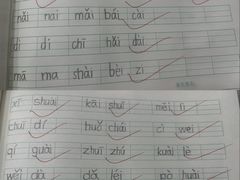 nǎi nai mǎi bái cài
dì di chī hǎi dài
mā ma shài bèi zi
xǐ shuāi kāi shuǐ měi lì
chuī dí huǒ chái cì wei
qí guài zhuī zhú kuài lè
wěi dà dǎ léi pò huài